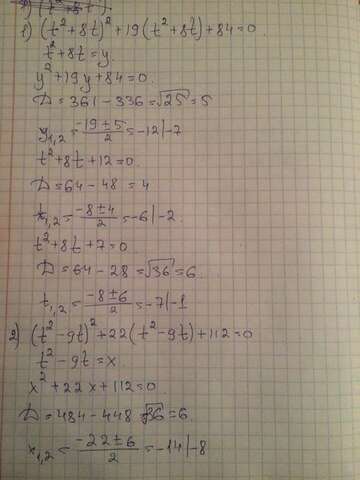 1) (t²+8t)²+19(t²+8t)+84=0.
t²+8t=y.
y²+19y+84=0.
D=361-336=√25=5
y₁,₂=(-19±5)/2=-12|-7
t²+8t+12=0.
D=64-48=4
t₁,₂=(-8±4)/2=-6|-2.
t²+8t+7=0
D=64-28=√36=6.
t₁,₂=(-8±6)/2=-7|-1
2) (t²-9t)²+22(t²-9t)+112=0
t²-9t=x.
x²+22x+112=0
D=484-448 √36=6
x₁,₂=(-22±6)/2=-14|-8